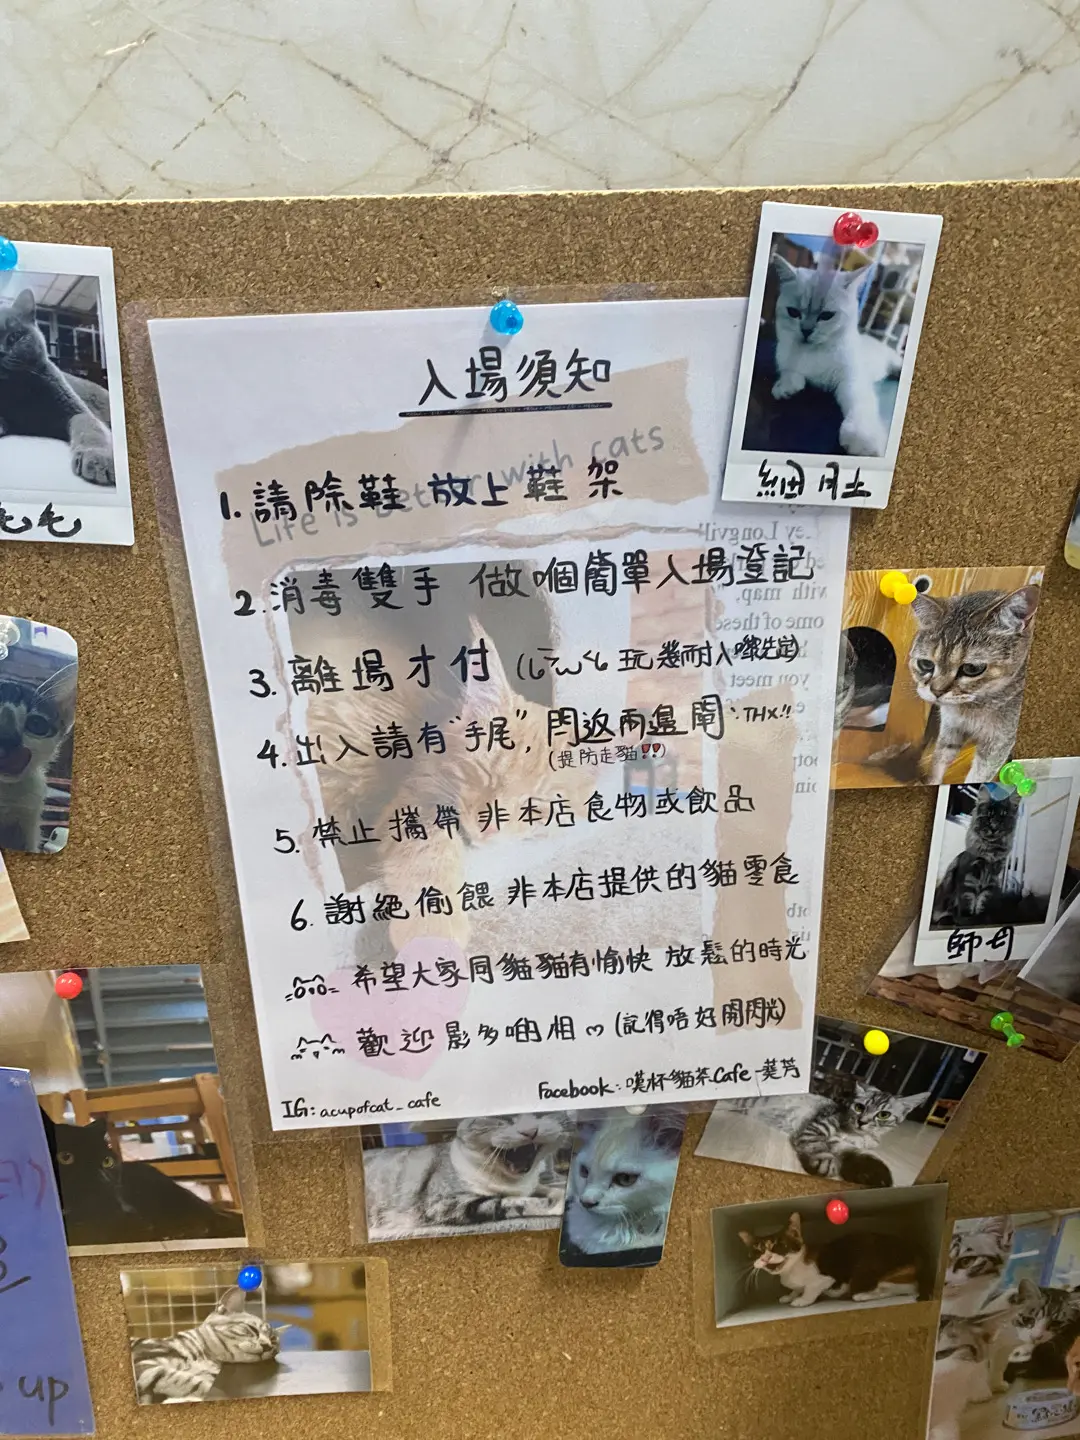 入場須知
Life is better with cats
1. 請除鞋 放上鞋架
2. 消毒雙手 做個簡單入場登記
3. 離場才付
玩幾耐入嚟先定)
4. 出入請有"手尾", 閂返兩邊閘. THX!!
(提防走貓!!)
5. 禁止攜帶 非本店食物或飲品
6. 謝絕偷餵 非本店提供的貓零食
希望大家同貓貓有愉快 放鬆的時光
歡迎影多啲相 (記得唔好開閃光)
IG: acupofcat_cafe
Facebook: 嘆杯貓茶Cafe -葵芳
師母
up